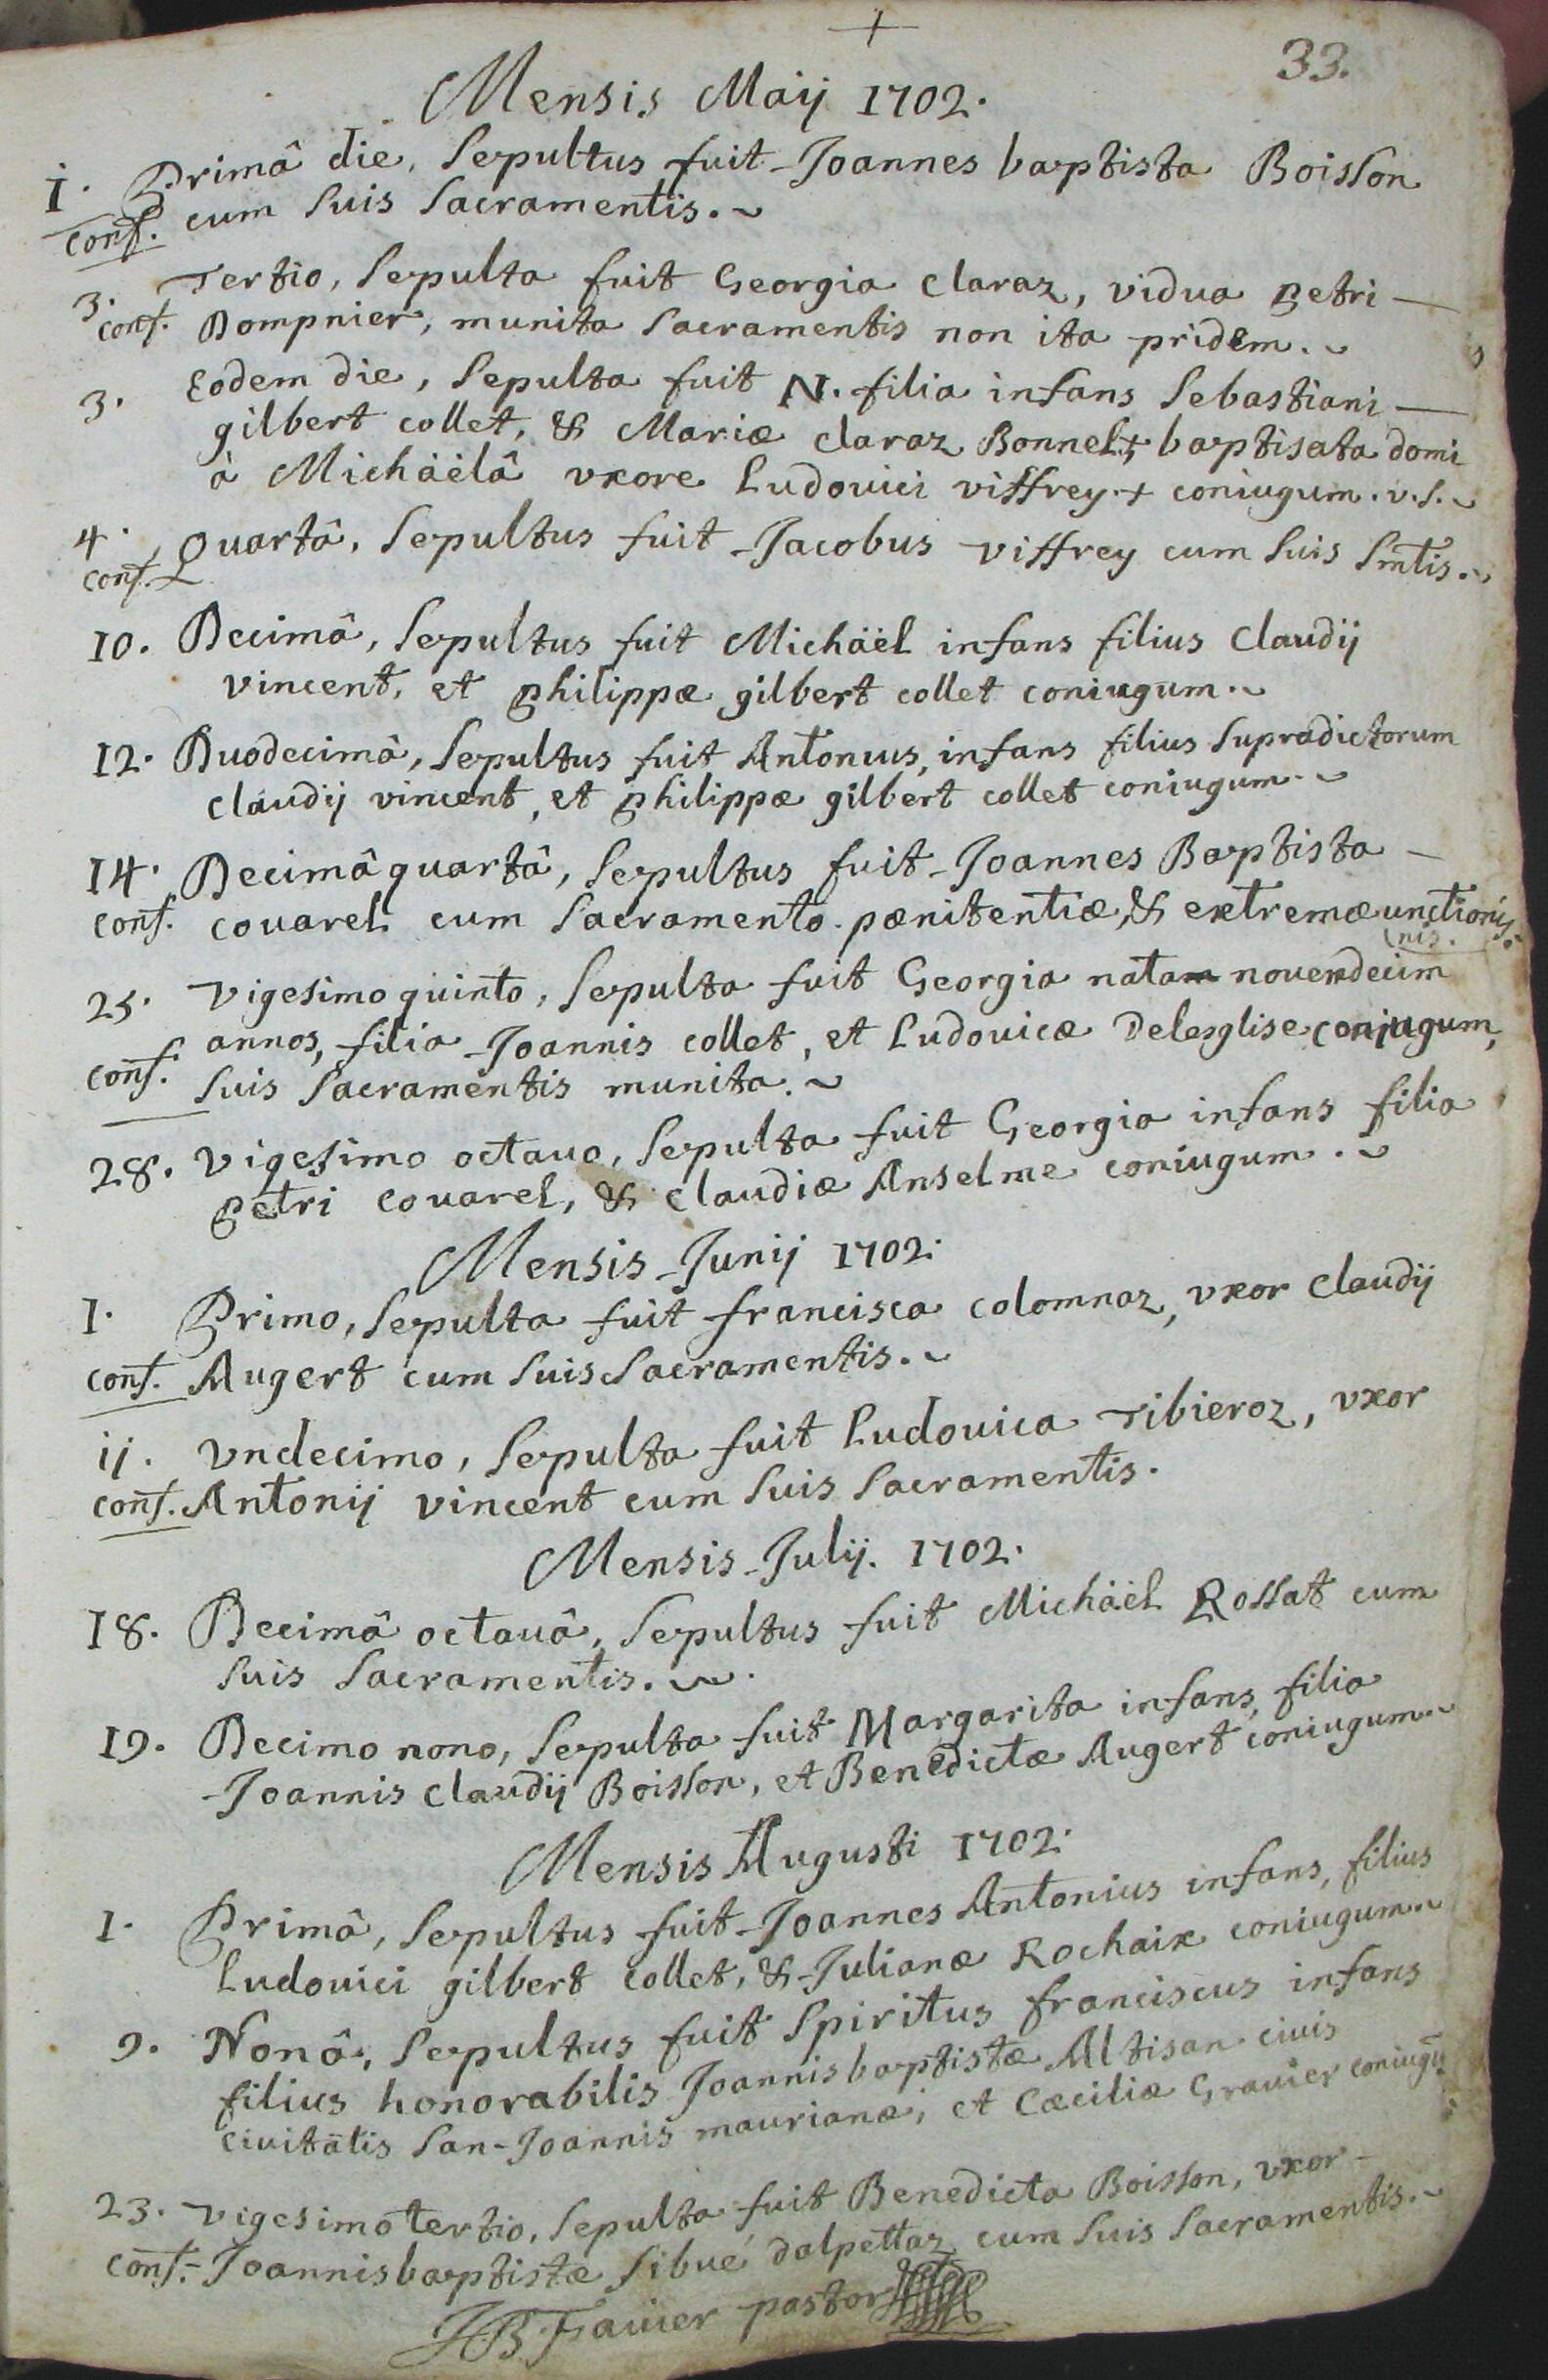 +
33.
Mensis Maij 1702.
1. Primâ die, sepultus fuit Joannes baptista Boisson
conf. cum suis sacramentis.
3. Tertio, sepulta fuit Georgia claraz, vidua petri
conf. Dompnier, munita sacramentis non ita pridem.
3. Eodem die, sepulta fuit N. filia infans sebastiani
gilbert collet, & Mariæ claraz Bonnel, + baptisata domi
à Michäëlâ vxore Ludouici viffrey. + coniugum. v.s.
4. Quartâ, sepultus fuit Jacobus viffrey cum suis smtis.
conf.
10. Decimâ, sepultus fuit Michäël infans filius claudij
vincent, et philippæ gilbert collet coniugum.
12. Duodecimâ, sepultus fuit Antonius, infans filius supradictorum
claudij vincent, et philippæ gilbert collet coniugum.
14. Decimâquartâ, sepultus fuit Joannes Baptista
conf. couarel cum sacramento pænitentiæ, & extremæunctionis.
nis.
25. Vigesimoquinto, sepulta fuit Georgia nata nouendecim
annos, filia Joannis collet, et Ludouicæ Deleglise coniugum,
conf. suis sacramentis munita.
28. Vigesimo octauo, sepulta fuit Georgia infans filia
petri couarel, & claudiæ Anselme coniugum.
Mensis Junij 1702.
1. Primo, sepulta fuit francisca colomnaz, vxor claudij
conf. Augert cum suis sacramentis.
ij. Vndecimo, sepulta fuit Ludouica Tibieroz, vxor
conf. Antonij vincent cum suis sacramentis.
Mensis Julij. 1702.
18. Decimâ octauâ, sepultus fuit Michäël Rossat cum
suis sacramentis.
19. Decimo nono, sepulta fuit Margarita infans, filia
Joannis claudij Boisson, et Benedictæ Augert coniugum.
Mensis Augusti 1702.
1. Primâ, sepultus fuit Joannes Antonius infans, filius
Ludouici gilbert collet, & Julianæ Rochaix coniugum.
9. Nonâ, sepultus fuit spiritus franciscus infans
filius honorabilis Joannis baptistæ Altisan ciuis
ciuitatis san-Joannis maurianæ, et Cæciliæ Grauier coniugũ
23. Vigesimotertio, sepulta fuit Benedicta Boisson, vxor
conf. Joannisbaptistæ sibué dalpettaz cum suis sacramentis.
JB Fauier pastor